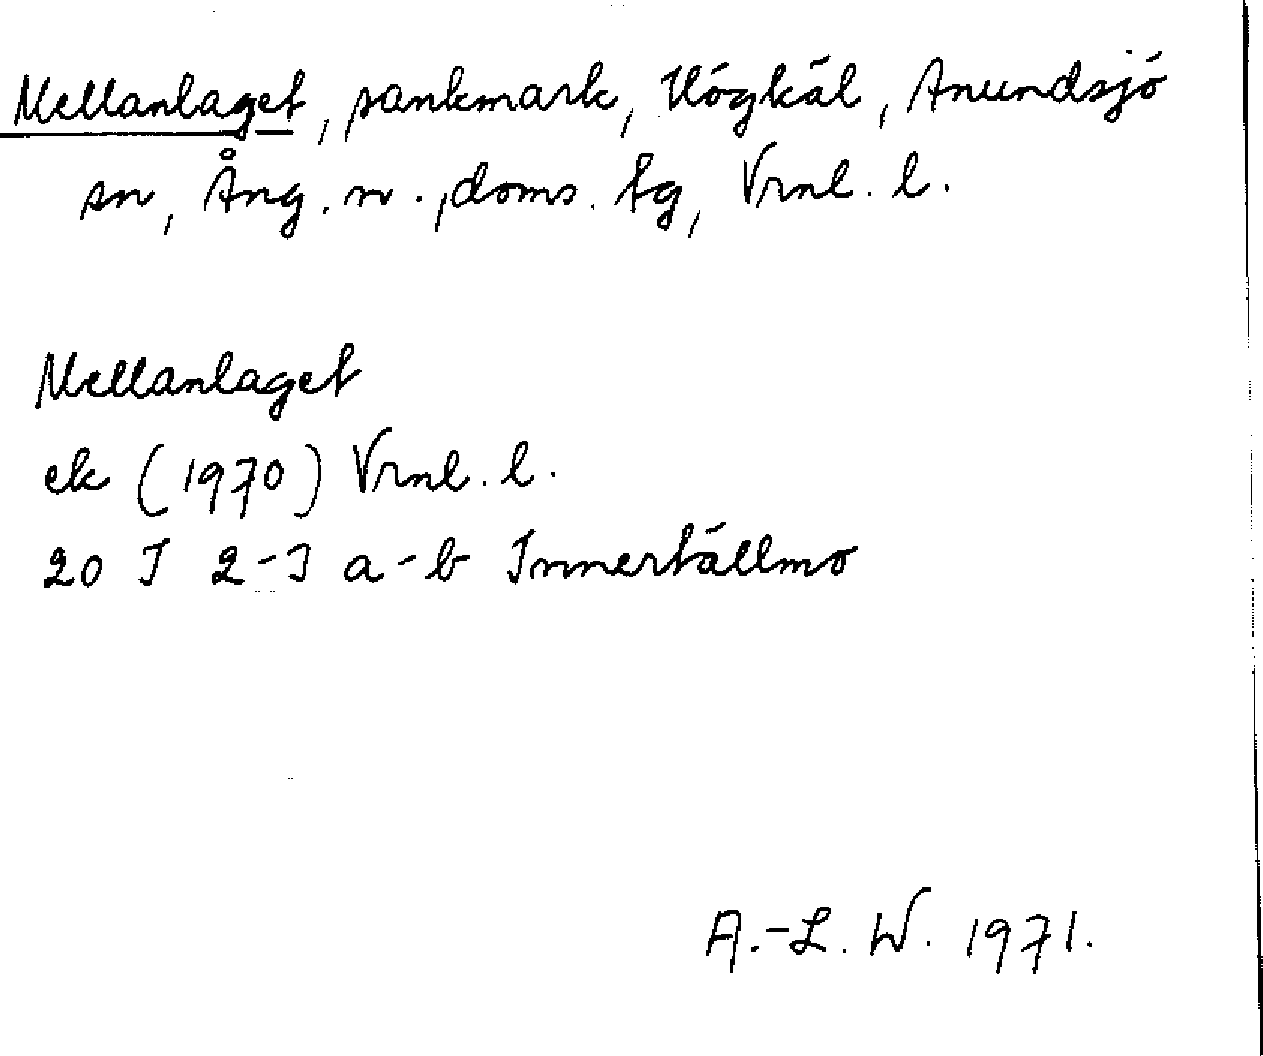 Mellanlaget, sankmark, Högkäl, Anundsjö
sn, Ång. n., doms. tg, Vrnl. l.
Mellanlaget
ek (1970) Vrnl. l.
20 I 2-3 a-b Innertällmo
A.-L. W. 1971.